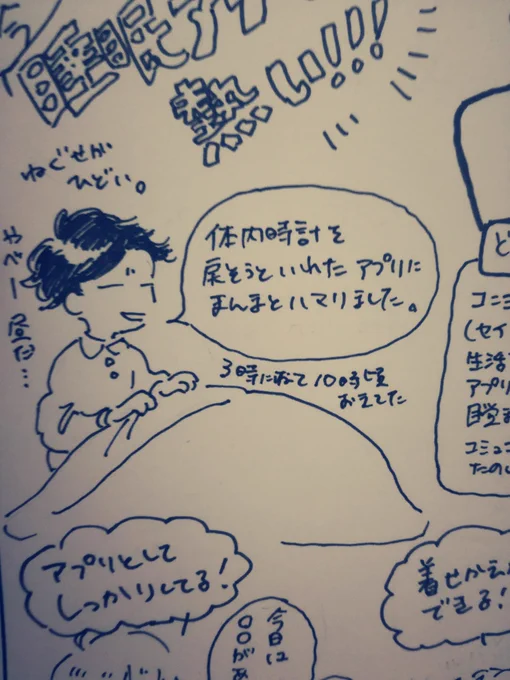 熱い!!!
ねぐせが
ひどい。
体内時計を
戻そうといれたアプリに
まんまとハマりました。
3時に寝て10時頃
おきてた
コニ
(セイ
生活
アプリ
目覚ま
コミュニ
たのし
アプリとして
しっかりしてる!
着せかえ
できる!
今日は
〇〇があ